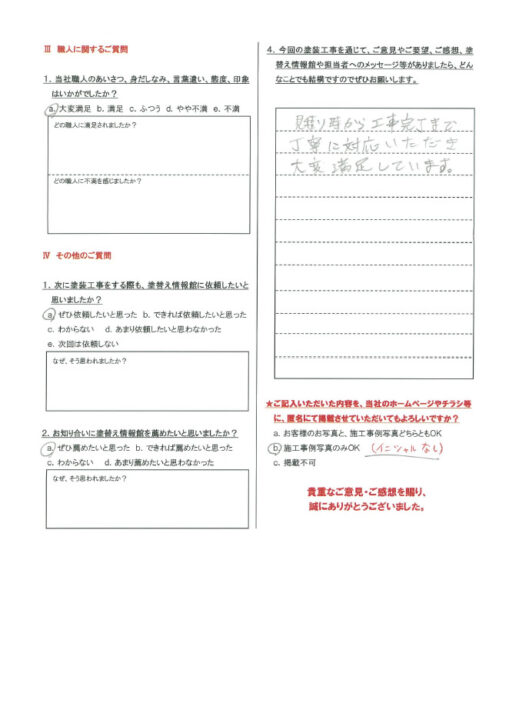 Ⅲ 職人に関するご質問
1. 当社職人のあいさつ、身だしなみ、言葉遣い、態度、印象
はいかがでしたか？
a. 大変満足 b. 満足 c. ふつう d. やや不満 e. 不満
どの職人に満足されましたか？
どの職人に不満を感じましたか？
Ⅳ その他のご質問
1. 次に塗装工事をする際も、塗替え情報館に依頼したいと
思いましたか？
a. ぜひ依頼したいと思った b. できれば依頼したいと思った
c. わからない d. あまり依頼したいと思わなかった
e. 次回は依頼しない
なぜ、そう思われましたか？
2. お知り合いに塗替え情報館を薦めたいと思いましたか？
a. ぜひ薦めたいと思った b. できれば薦めたいと思った
c. わからない d. あまり薦めたいと思わなかった
なぜ、そう思われましたか？
4. 今回の塗装工事を通じて、ご意見やご要望、ご感想、塗
替え情報館や担当者へのメッセージ等がありましたら、どん
なことでも結構ですのでぜひお願いします。
見積り時から工事完了まで
丁寧に対応いただき
大変満足しています。
★ご記入いただいた内容を、当社のホームページやチラシ等
に、匿名にて掲載させていただいてもよろしいですか？
a. お客様のお写真と、施工事例写真どちらともOK
b. 施工事例写真のみOK (イニシャルなし)
c. 掲載不可
貴重なご意見・ご感想を賜り、
誠にありがとうございました。